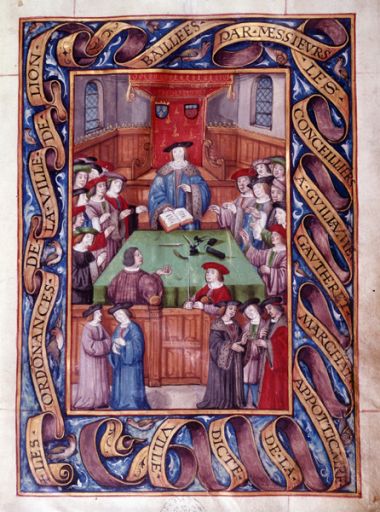 LES · ORDONANCES · DE · LA · VILLE · DE · LION
BAILLEES · PAR · MESSIEVRS
LES · CONCEILLIES · A · GVILLAVME · GAVTHERET · MARCHAT · APPOTICAIRE
DE · LA · DICTE · VILLE